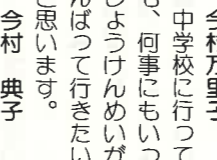 今村万里子
中学校に行って
も、何事にもいっ
しょうけんめいが
んばって行きたい
と思います。
今村　典子